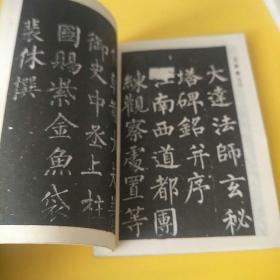 大達法師玄秘
塔碑銘并序
江南西道都團
練觀察處置等
御史中丞上柱
國賜紫金魚袋
裴休撰